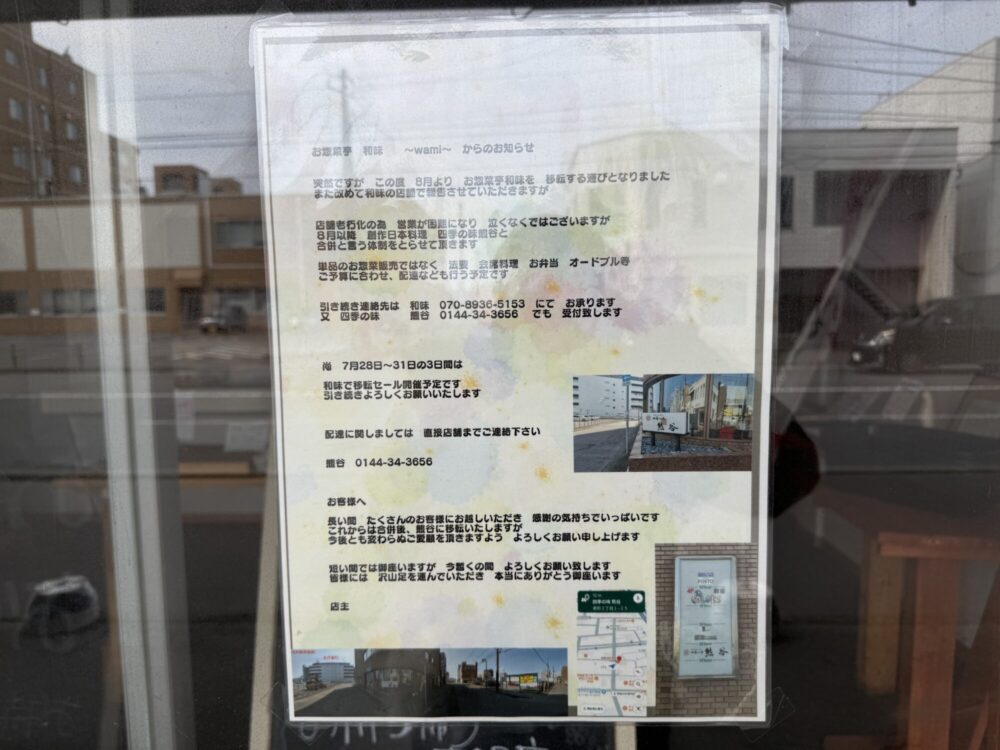 お惣菜亭 和味 ～wami～ からのお知らせ
突然ですが この度 8月より お惣菜亭和味を 移転する運びとなりました
また改めて和味の店舗で報告させていただきますが
店舗老朽化の為 営業が困難になり 泣くなくではございますが
8月以降 創作日本料理 四季の味熊谷と
合併と言う体制をとらせて頂きます
単品のお惣菜販売ではなく 法要 会席料理 お弁当 オードブル等
ご予算に合わせ、配達なども行う予定です
引き続き連絡先は 和味 070-8936-5153 にて お承ります
又 四季の味 熊谷 0144-34-3656 でも 受付致します
尚 7月28日～31日の3日間は
和味で移転セール開催予定です
引き続きよろしくお願いいたします
配達に関しましては 直接店舗までご連絡下さい
熊谷 0144-34-3656
お客様へ
長い間 たくさんのお客様にお越しいただき 感謝の気持ちでいっぱいです
これからは合併後、熊谷に移転いたしますが
今後とも変わらぬご愛顧を頂きますよう よろしくお願い申し上げます
短い間では御座いますが 今暫くの間 よろしくお願い致します
皆様には 沢山足を運んでいただき 本当にありがとう御座います
店主
熊谷
四季の味 熊谷
熊谷